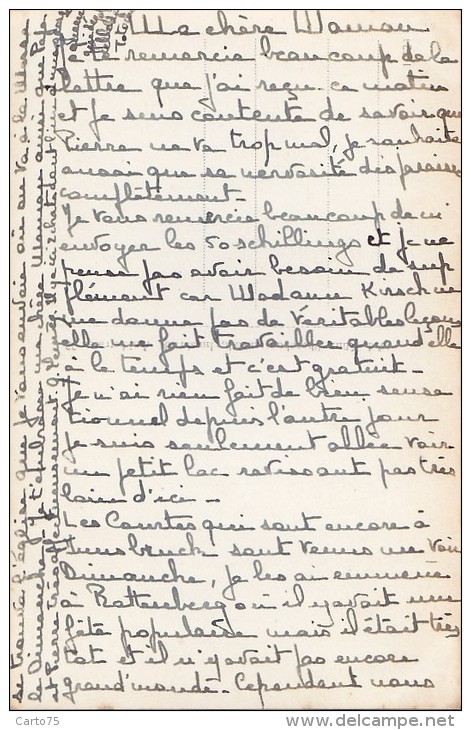 Ma chère Maman
Je remercie beaucoup de la
lettre que j'ai reçu ce matin
et je suis contente de savoir que
Pierre ne va trop mal, je souhaite
aussi que sa nervosité disparaisse
complètement -
Je vous remercie beaucoup de m'
envoyer les 50 schillings et je ne
pense pas avoir besoin de sup
plément car Madame Kirschne
me donne pas de véritables leçons
elle me fait travailler quand elle
a le temps et c'est gratuit -
Je n'ai rien fait de bien sensa
tionnel depuis l'autre jour
je suis seulement allée voir
un petit lac ravissant pas très
loin d'ici -
Les Courtes qui sont encore à
Innsbruck sont venus me voir
Dimanche, je les ai emmené
à Rattenberg où il y avait une
fête populaire mais il était très
tôt et il n'y avait pas encore
grand'monde - Cependant nous
se trouve l'église que je vous envoie où on va à la Messe
le Dimanche, je t'embrasse ma chère Maman ainsi que Papa
et Pierre très affectueusement
Carto75